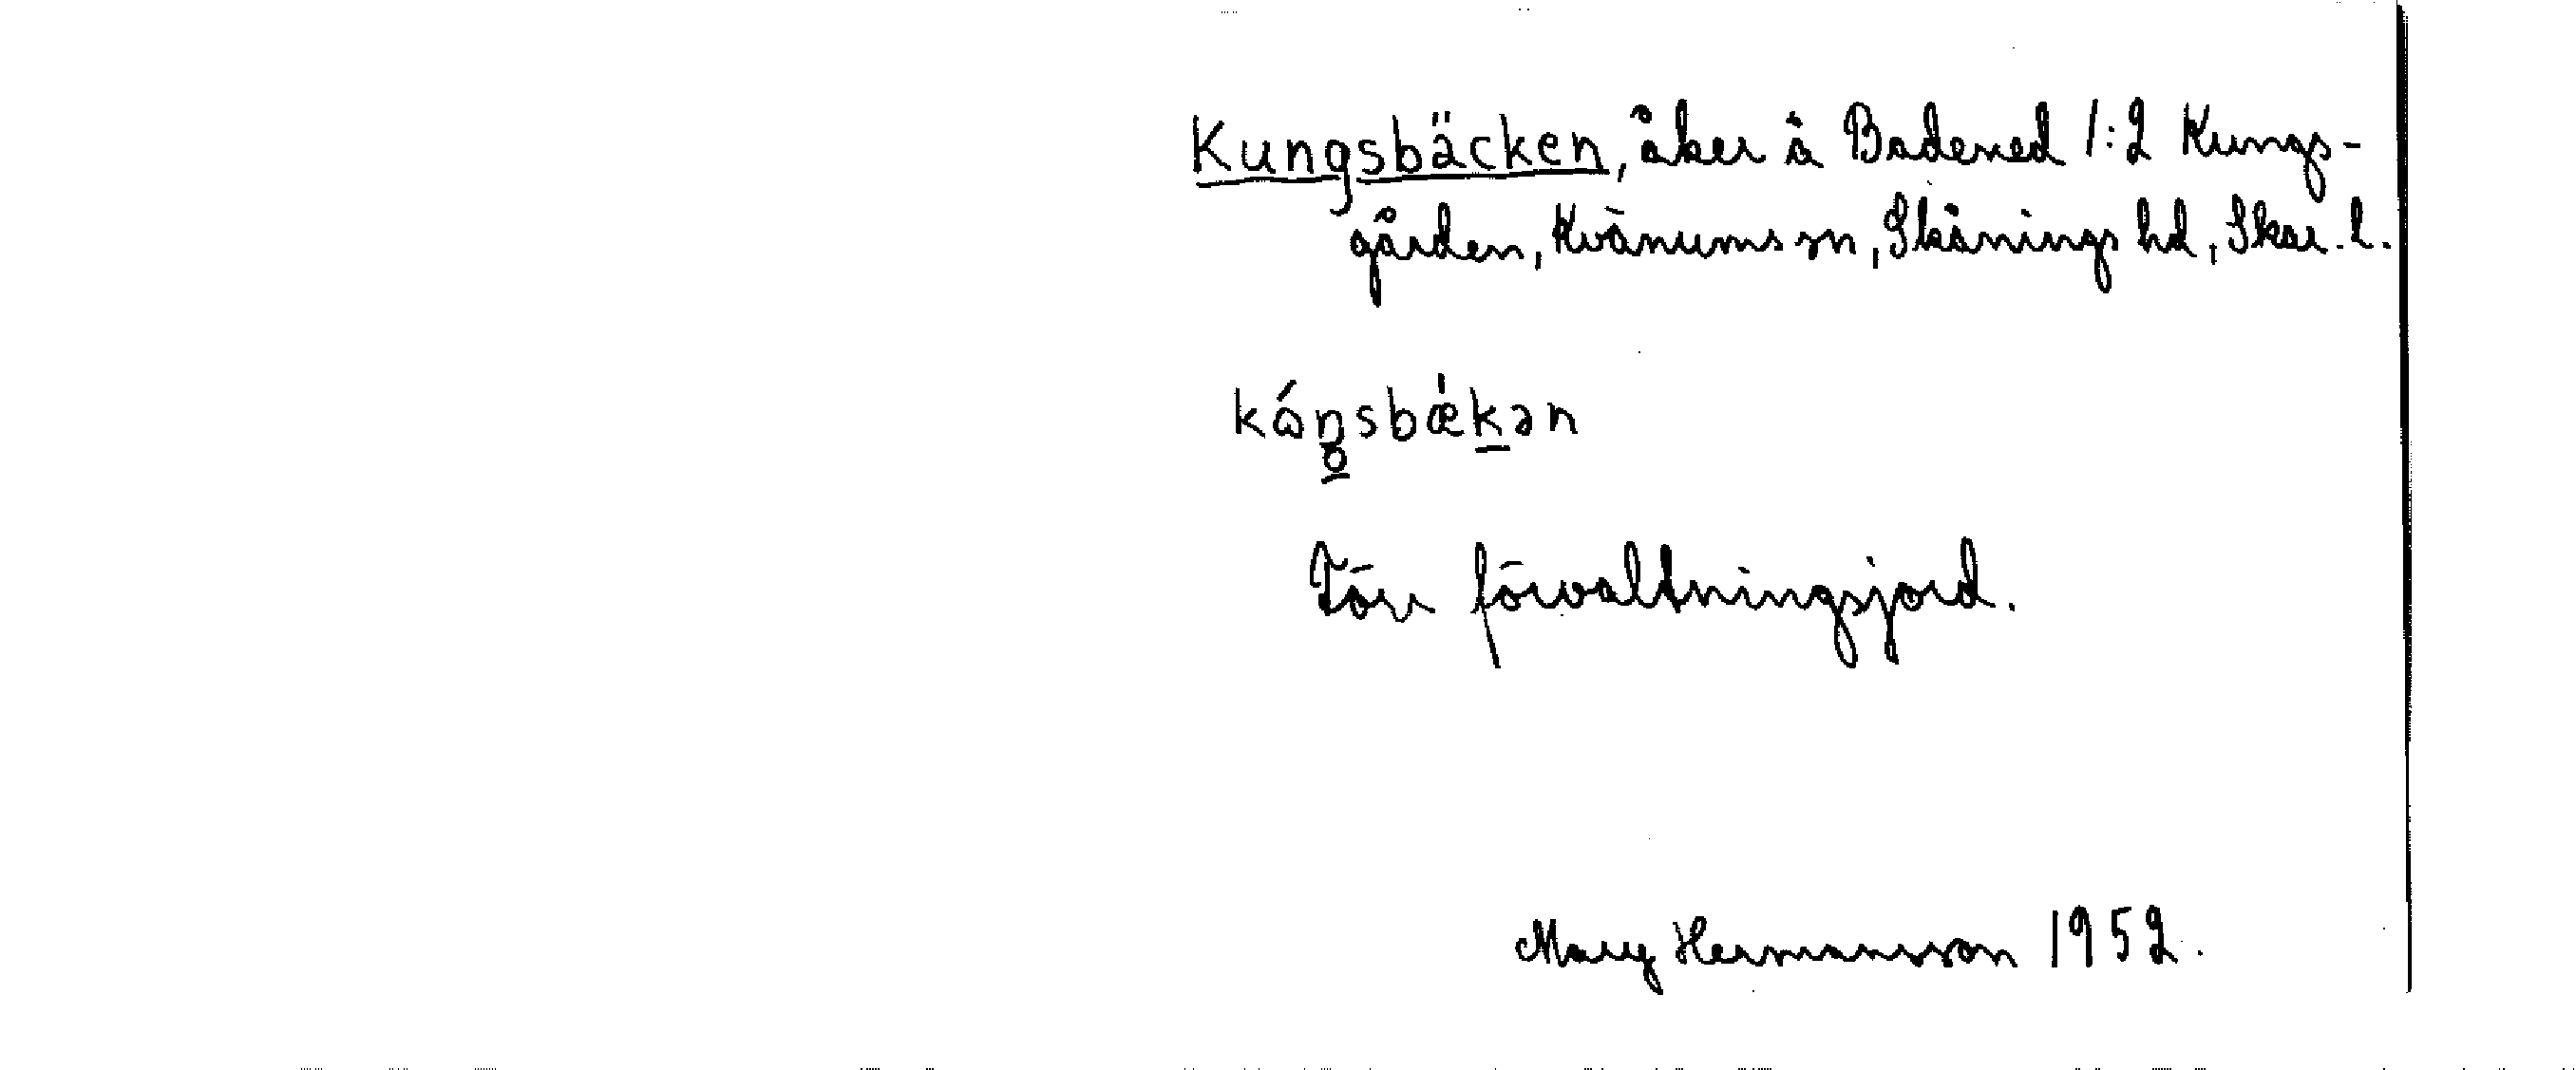 Kungsbäcken, åker å Badened 1:2 Kungs-
gården, Kvänums sn, Skånings hd, Skar. l.
kɷ́ŋsbǽkən
Torr förvaltningsjord.
Mary Hermansson 1952.